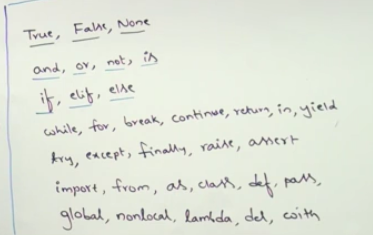 True, False, None
and, or, not, is
if, elif, else
while, for, break, continue, return, in, yield
try, except, finally, raise, assert
import, from, as, class, def, pass,
global, nonlocal, lambda, del, with